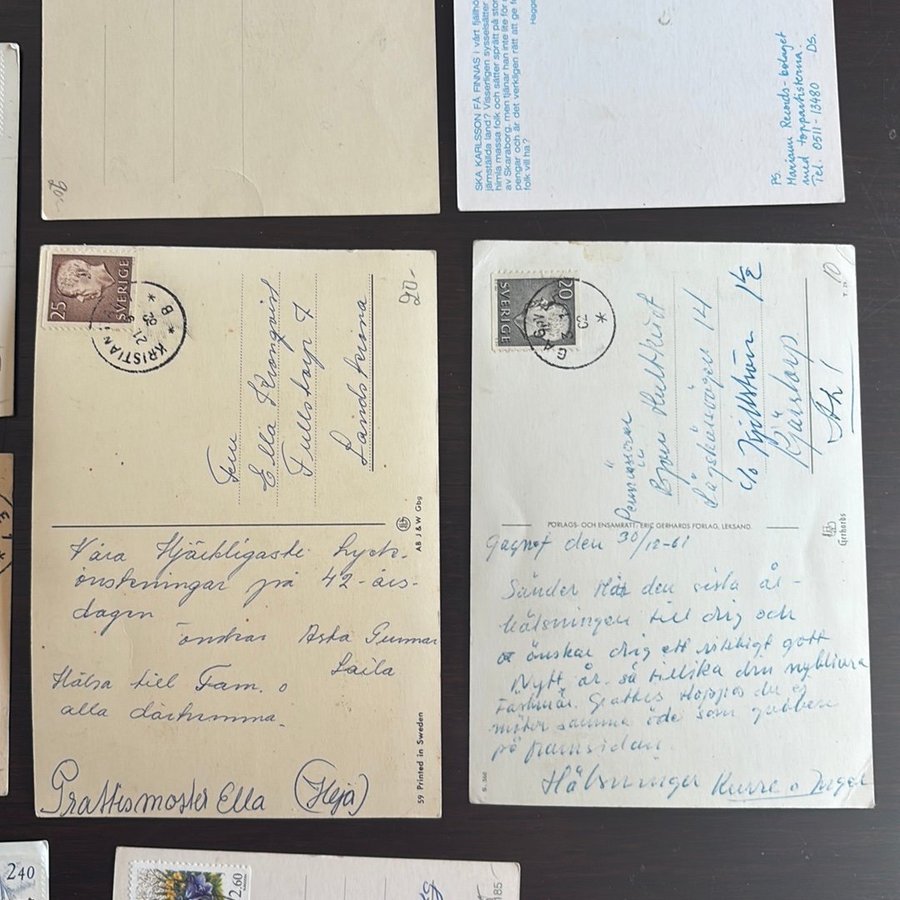 20:-
SKA KARLSSON FÅ FINNAS i vårt fjällhö
jämställda land? Visserligen sysselsätter
himla massa folk och sätter sprätt på stor
av Skaraborg, men tjänar han inte lite för
pengar och är det verkligen rätt att ge f
folk vill ha?
Hagge
PS.
Mariann Records-bolaget
med toppartisterna.
Tel. 0511-13480 DS.
25
SVERIGE
KRISTIAN
* B *
21
20:-
Fru
Ella Kronqvist
Tullstorp 7
Landskrona
AB J & W Gbg
Våra Hjärtligaste Lyck-
önskningar på 42-års-
dagen
önskar Asta Gunnar
Laila
Hälsa till Fam. o
alla därhemma.
Grattis moster Ella (Heja)
59 Printed in Sweden
20
SVERIGE
10
T. 29
Björn Hultkvist
14
c/o Kjellström 1 1/2
Bjästorp
FÖRLAGS- OCH ENSAMRÄTT: ERIC GERHARDS FÖRLAG, LEKSAND.
Gerhards
Gagnef den 30/12-61
Sänder här den sista års-
hälsningen till dig och
önskar dig ett riktigt gott
Nytt år. så tillika den nyblivna
Fästmän. Grattis Hoppas du ej
möter samma öde som gubben
på framsidan.
Hälsningar Kurre o Inger
S. 560
240
2.60
185